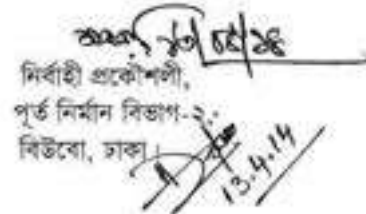 নির্বাহী প্রকৌশলী,
পূর্ত নির্মান বিভাগ-২,
বিউবো, ঢাকা।
13.4.14